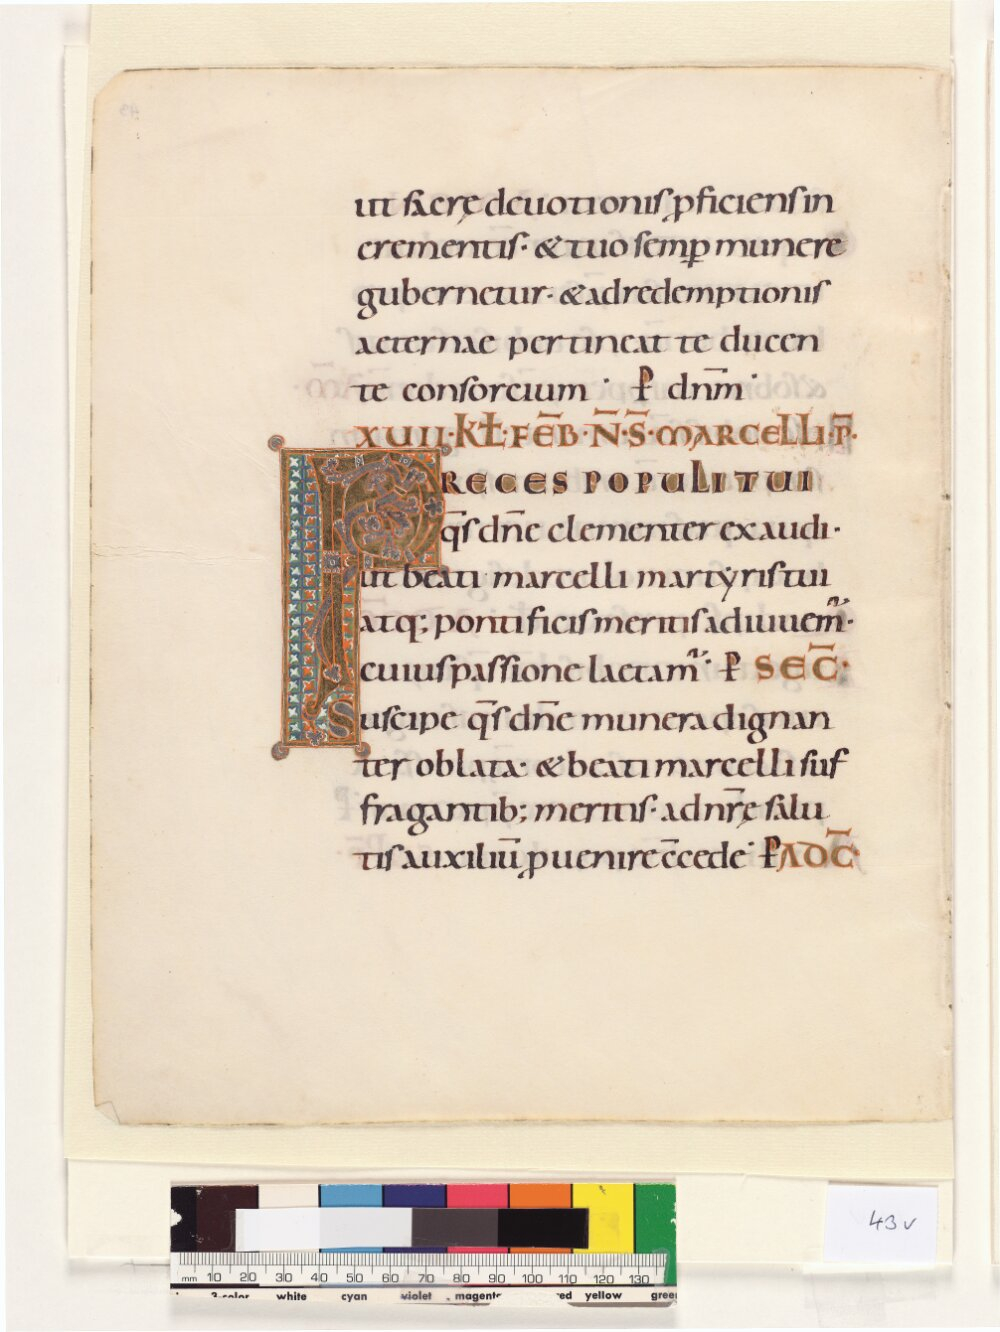 ut sacrę deuotionis ꝓficiens in
crementis· & tuo semꝑ munere
gubernetur· & ad redemptionis
aeternae pertineat te ducen
te consorcium· P dn̄m·
XUII·KŁ·FEB̄·N̄·S̄·MARCELLI·P̄·
PRECES POPULI TUI
q̄s dn̄e clementer exaudi·
ut beati marcelli martyris tui
atq; pontificis meritis adiuuem̃·
cuius passione laetam̃· P SEC̄·
Suscipe q̄s dn̄e munera dignan
ter oblata· & beati marcelli suf
fragantib; meritis· ad nr̄ę salu
tis auxiliū ꝓuenire c̄cede· P AD C̄·
43v
mm 10 20 30 40 50 60 70 80 90 100 110 120 130
3-color white cyan violet magenta red yellow green